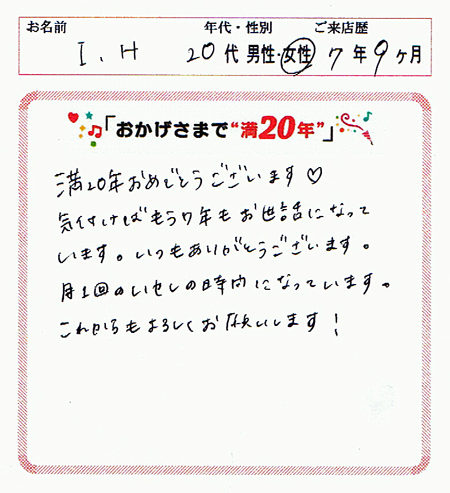 お名前 年代・性別 ご来店歴
I.H 20代 男性・女性 7年9ヶ月
「おかげさまで“満20年”」
満20年おめでとうございます♡
気付けばもう7年もお世話になって
います。いつもありがとうございます。
月1回のいやしの時間になっています。
これからもよろしくお願いします!